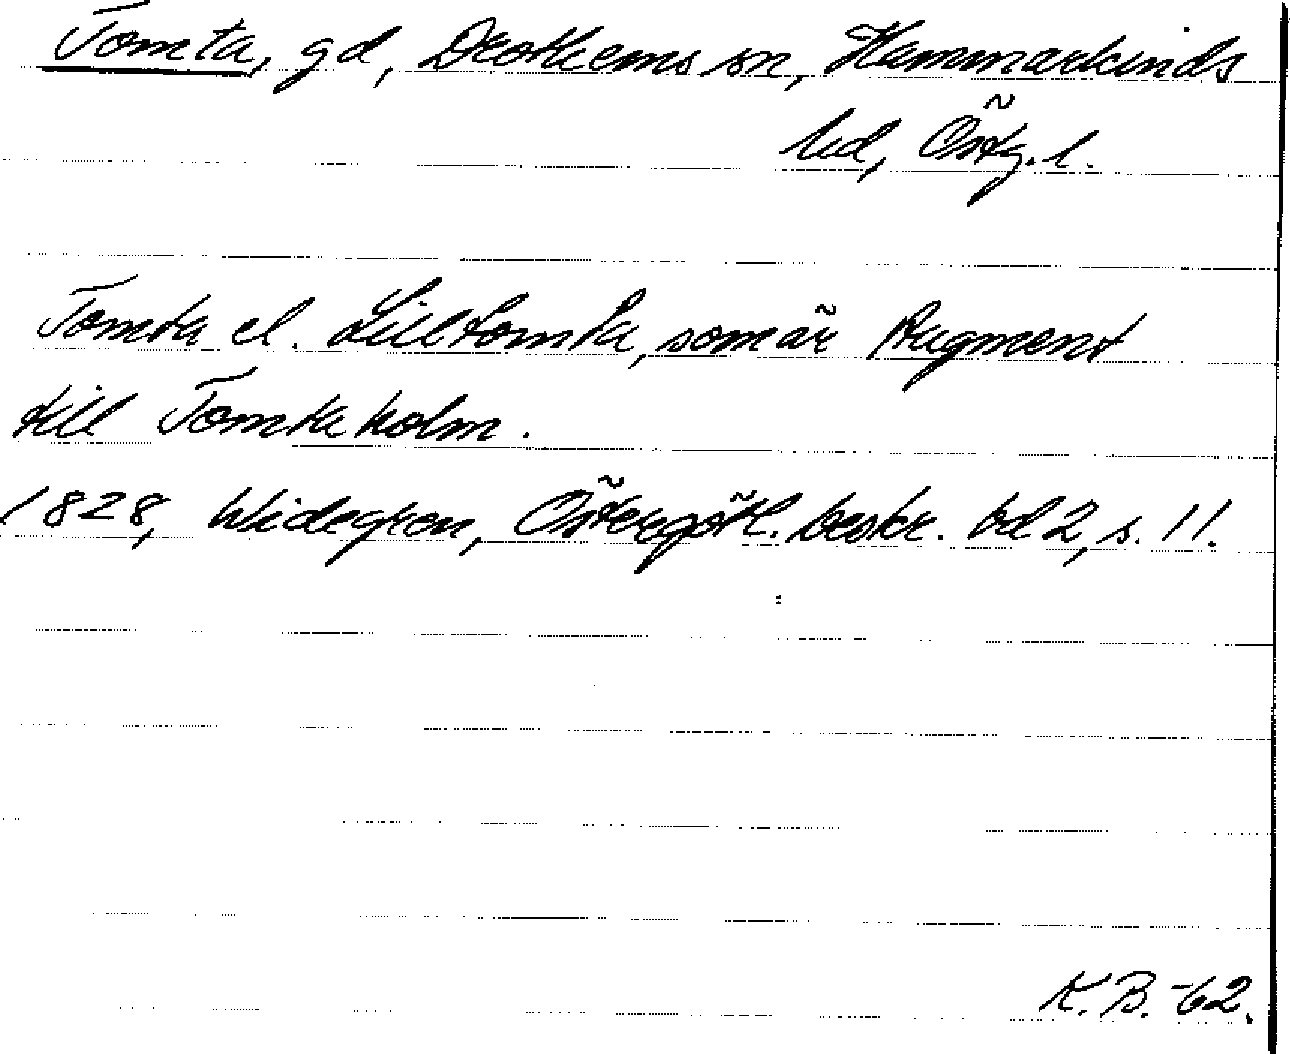 Tomta, gd, Drothems sn, Hammarkinds
hd, Östg. l.
Tomta el. Lilltomta, som är Augment
till Tomtaholm.
1828, Widegren, Östergötl. beskr. bd 2, s. 11.
K.B. -62.